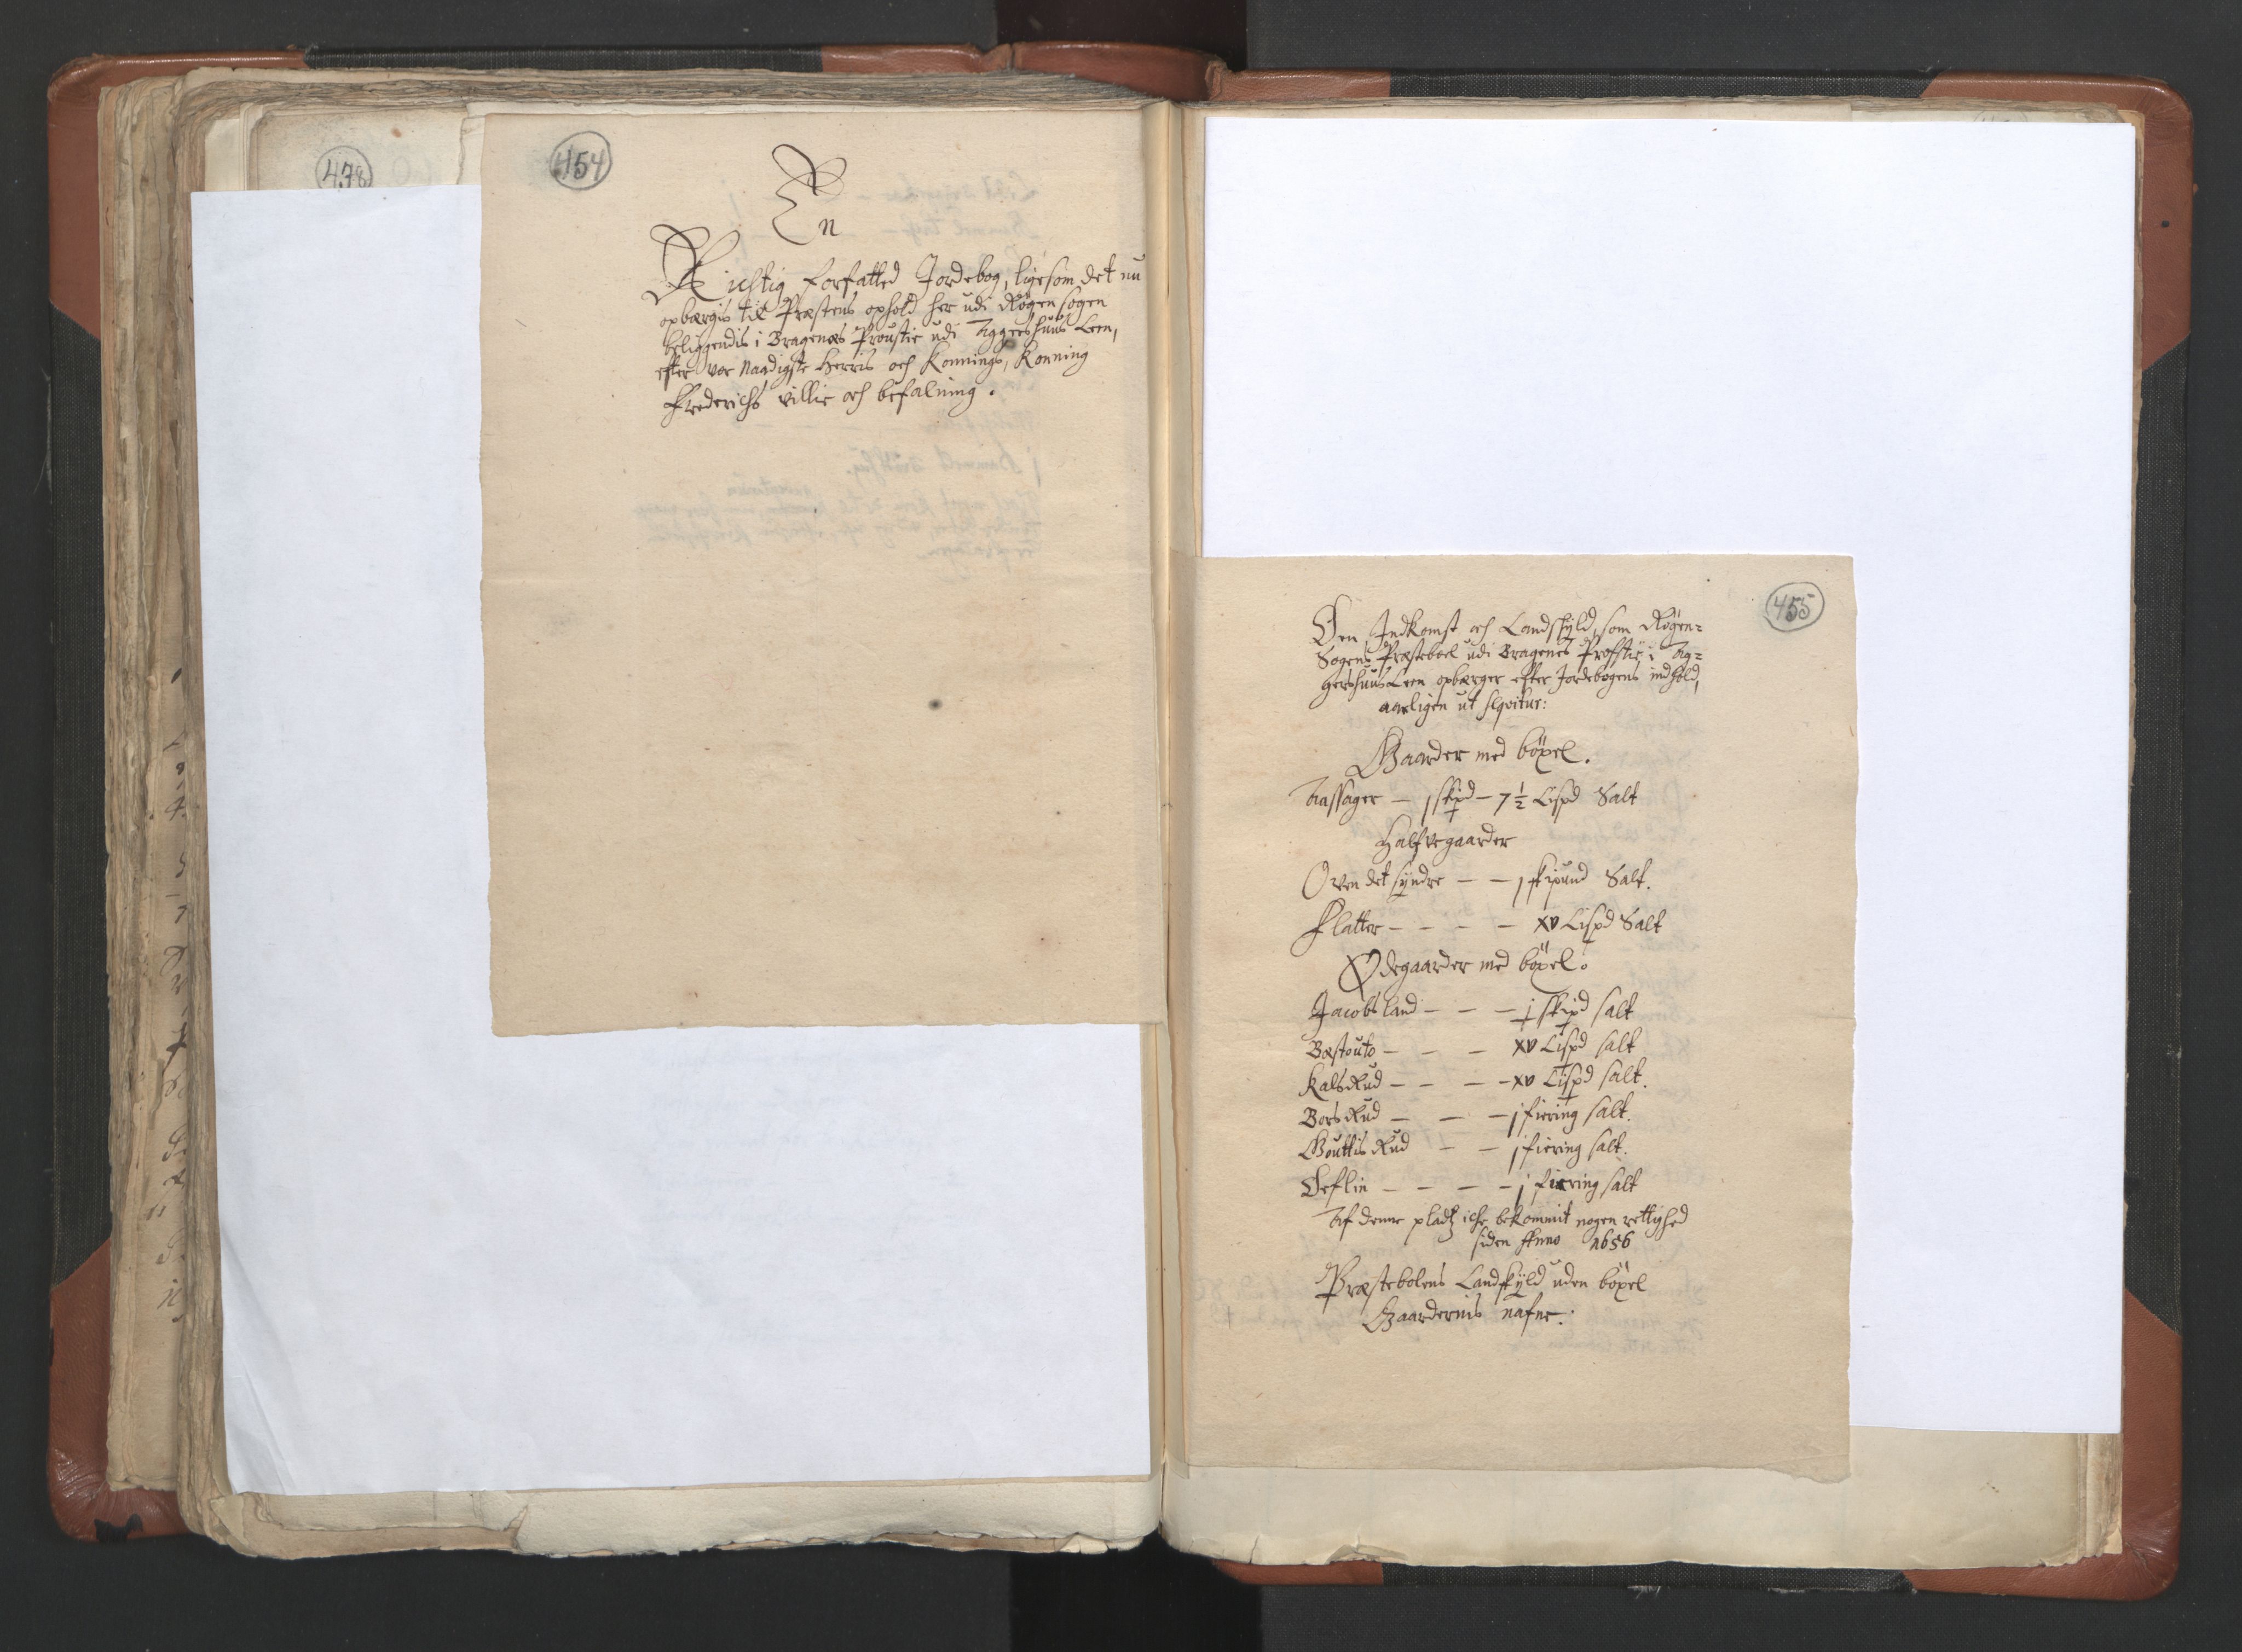 478
454
En
Richtig forfatted Jordebog, ligesom det nu
opbærgis til Præstens ophold her udi Røgen sogen
beliggendis i Bragenæs Proustie udi Aggershuus Leen,
efter vor Naadigste Herris och Konnings, Konning
Frederichs villie och befalning.
455
Den Indkomst och Landskyld, som Røgen-
Sogens Præsteboel udi Bragenes Profstie i Ag-
gershuus Leen opbærger efter Jordebogens indhold,
aarligen ut seqvitur:
Gaarder med böxel.
Aassager — j skipd — 7 ½ Lispd Salt
Halfvegaarder
Oven det syndre — — j skipund Salt.
Flatter — — — — xv Lispd Salt
Ødegaarder med böxel.
Jacobsland — — — j skipd salt
Bøstouto — — — xv Lispd salt
Kalsrud — — — xv Lispd salt.
Borsrud — — — j fiering salt.
Gouttisrud — — j fiering salt.
Deflin — — — — j fiering salt
Af denne pladtz iche bekommit nogen rettighed
siden Anno 1656
Præstebolens Landskyld uden böxel
Gaardernis nafne: